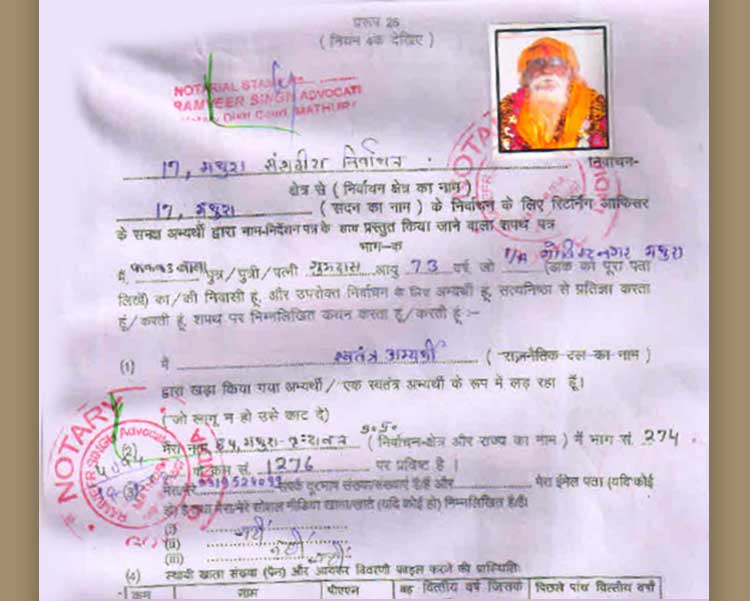 प्ररूप 26
( नियम 4क देखिए )
NOTARIAL STAMP
RAMVEER SINGH ADVOCATE
Distt Court, MATHURA
17, मथुरा संसदीय निर्वाचन
निर्वाचन-
क्षेत्र से ( निर्वाचन क्षेत्र का नाम )
17, मथुरा ( सदन का नाम ) के निर्वाचन के लिए रिटर्निंग आफिसर
के समक्ष अभ्यर्थी द्वारा नाम-निर्देशन पत्र के साथ प्रस्तुत किया जाने वाला शपथ पत्र
भाग-क
मैं, फक्कड़ बाबा पुत्र/पुत्री/पत्नी आयु 73 वर्ष, जो गोविन्दनगर मथुरा (डाक का पूरा पता
लिखें) का/की निवासी हूं, और उपरोक्त निर्वाचन के लिए अभ्यर्थी हूं, सत्यनिष्ठा से प्रतिज्ञा करता
हूं/करती हूं, शपथ पर निम्नलिखित कथन करता हूं/करती हूं :-
(1) मैं स्वतंत्र अभ्यर्थी ( राजनैतिक दल का नाम )
द्वारा खड़ा किया गया अभ्यर्थी/ एक स्वतंत्र अभ्यर्थी के रूप में लड़ रहा हूँ।
(जो लागू न हो उसे काट दे)
(2) मेरा नाम 84, मथुरा-वृन्दावन उ0प्र0 (निर्वाचन-क्षेत्र और राज्य का नाम ) में भाग सं. 274
के क्रम सं. 1276 पर प्रविष्ट है ।
(3) मेरा/मेरे सम्पर्क दूरभाष संख्या/संख्याएं है/हैं और मेरा ईमेल पता (यदि कोई
हो) है तथा मेरा/मेरे सोशल मीडिया खाता/खाते (यदि कोई हो) निम्नलिखित है/हैं
(i) नहीं
(ii) नहीं
(iii) नहीं
(4) स्थायी खाता संख्या (पैन) और आयकर विवरणी फाइल करने की प्रास्थिति:
क्रम नाम पीएएन वह वित्तीय वर्ष जिसके पिछले पांच वित्तीय वर्षों
NOTARY
RAMVEER SINGH Advocate
NOTARY